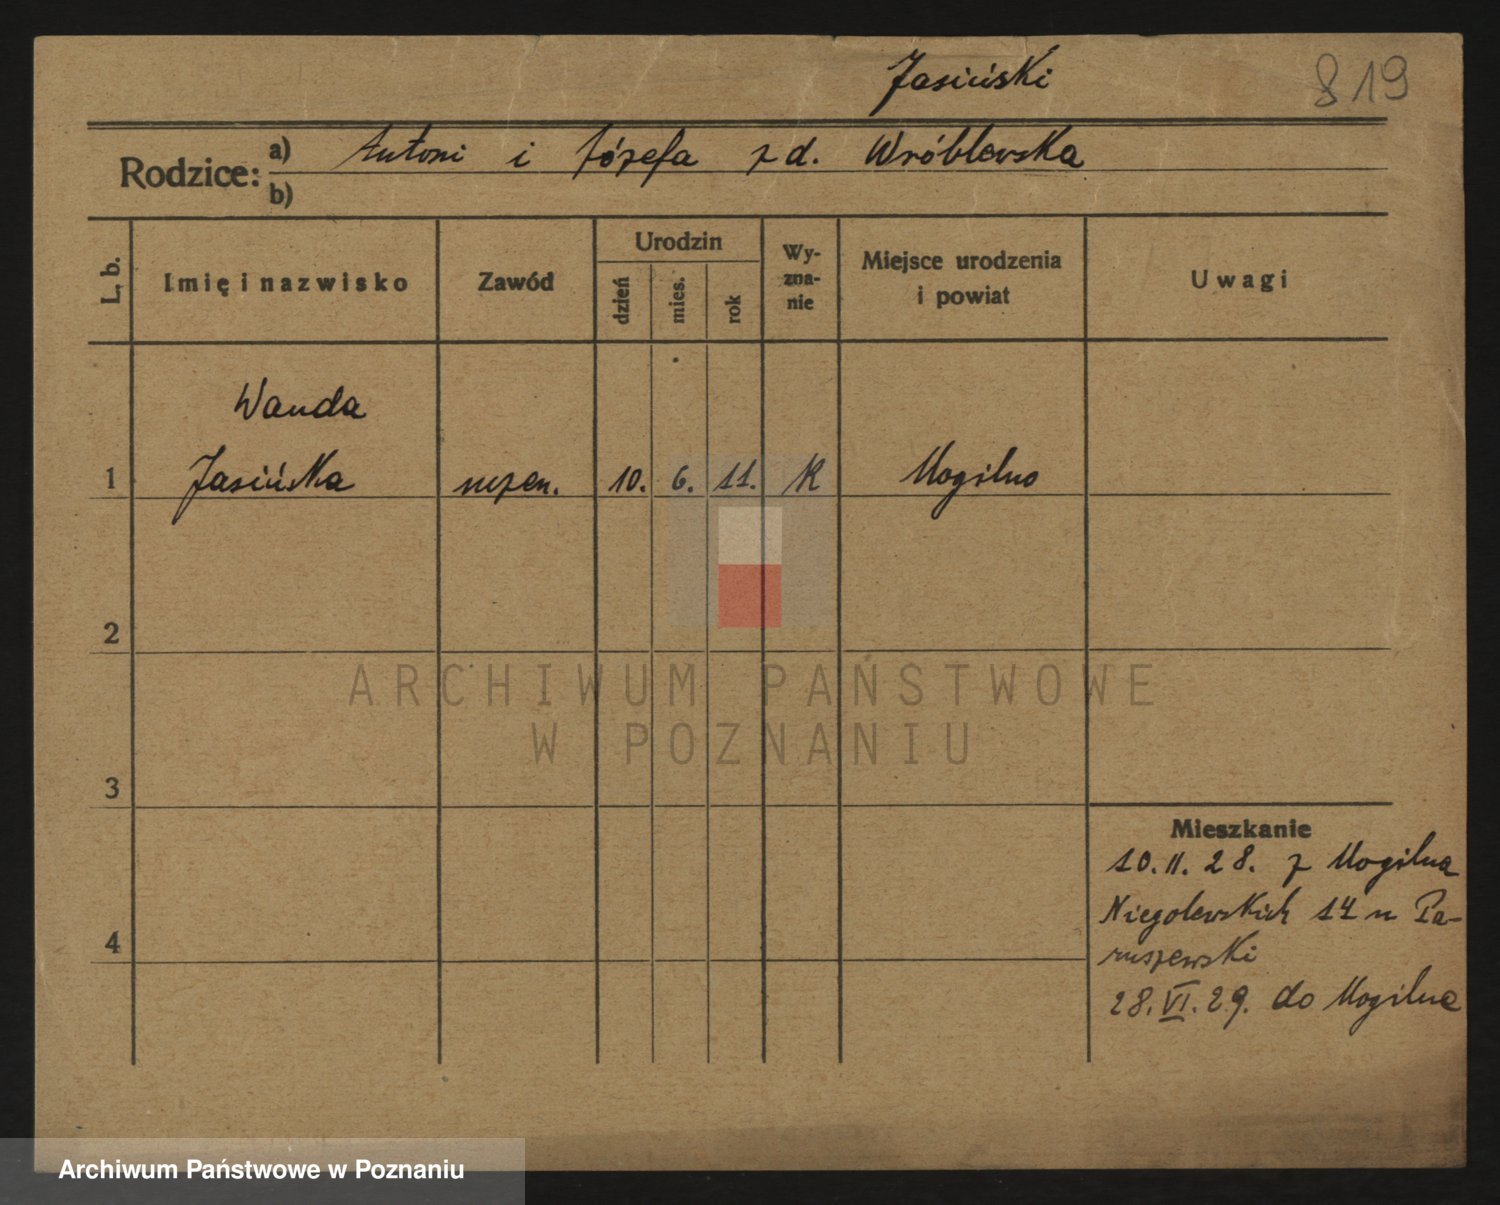 Jasiński 819
Rodzice: a) Antoni i Józefa z d. Wróblewska
b)
L. b. Imię i nazwisko Zawód Urodzin dzień mies. rok Wy-zna-nie Miejsce urodzenia i powiat Uwagi
Wanda
1 Jasińska uczen. 10. 6. 11. K Mogilno
2
ARCHIWUM PAŃSTWOWE
W POZNANIU
3
Mieszkanie
10. II. 28. z Mogilna
Niegolewskich 14 u Pa-
ruszewski
4
28. VI. 29. do Mogilna
Archiwum Państwowe w Poznaniu